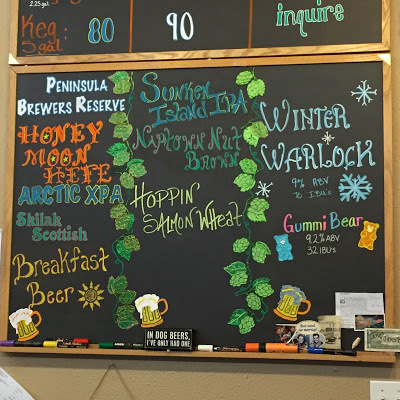 2.25 gal.
Keg
5 gal
80
90
inquire
PENINSULA
BREWERS RESERVE
HONEY
MOON
HEFE
ARCTIC XPA
Skilak
Scottish
Breakfast
Beer
SUNKEN
ISLAND IPA
NIPTOWN NUT
BROWN
HOPPIN'
SALMON WHEAT
WINTER
WARLOCK
9% ABV
IBU's
Gummi Bear
9.2% ABV
32 IBU's
IN DOG BEERS,
I'VE ONLY HAD ONE